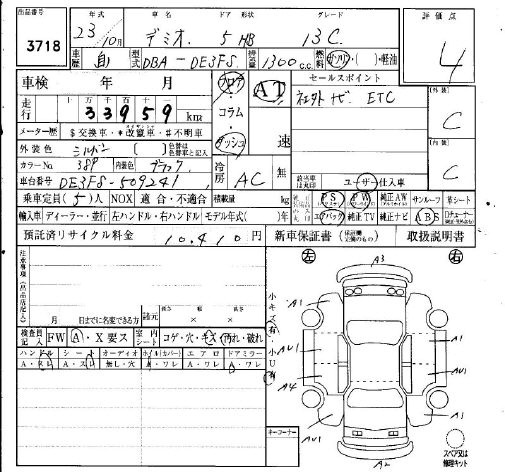 出品番号
3718
年式 車名 ドア 形状 グレード 評価点
23年 10月 デミオ 5 HB 13C. 4
車歴 自 型式 DBA-DE3FS 排気量 1300c.c. 燃料 ガソリン・軽油
車検 年 月
走行 十 万 千 百 十 一
33959 km
フロア・コラム・ダッシュ
AT 速
セールスポイント
社外ナビ ETC
外装 C
内装 C
メーター歴 $交換車・*改竄車・#不明車
外装色 シルバー 色替は色替車と記入
カラーNo. 38P 内装色 ブラック
車台番号 DE3FS-509241
冷房 AC 無
該当車は丸印 ユーザー仕入車
乗車定員(5)人 NOX 適合・不適合 積載量 kg
PS PW 純正AW サンルーフ 革シート
輸入車 ディーラー・並行 左ハンドル・右ハンドル モデル年式( )年
エアバック 純正TV 純正ナビ ABS
預託済リサイクル料金 10,410円
新車保証書 取扱説明書
注意事項(出品店記入)
月 日までに名変できる方 諸元 長さ 幅 高さ × ×
検査員記入 FW A・X要ス 室内シート コゲ・穴・キズ・汚れ・破れ
ハンドル シート オーディオ ホイルカバー エアロ ドアミラー
A・スレ A・スレ 無し・穴 A・ワレ A・ワレ A・ワレ
小キズ有・小U有
キーコーナー
左 右
A3
A1 A1
AU1 A1
A4 AU1
AU1 A3
A2
スペア又は修理キット